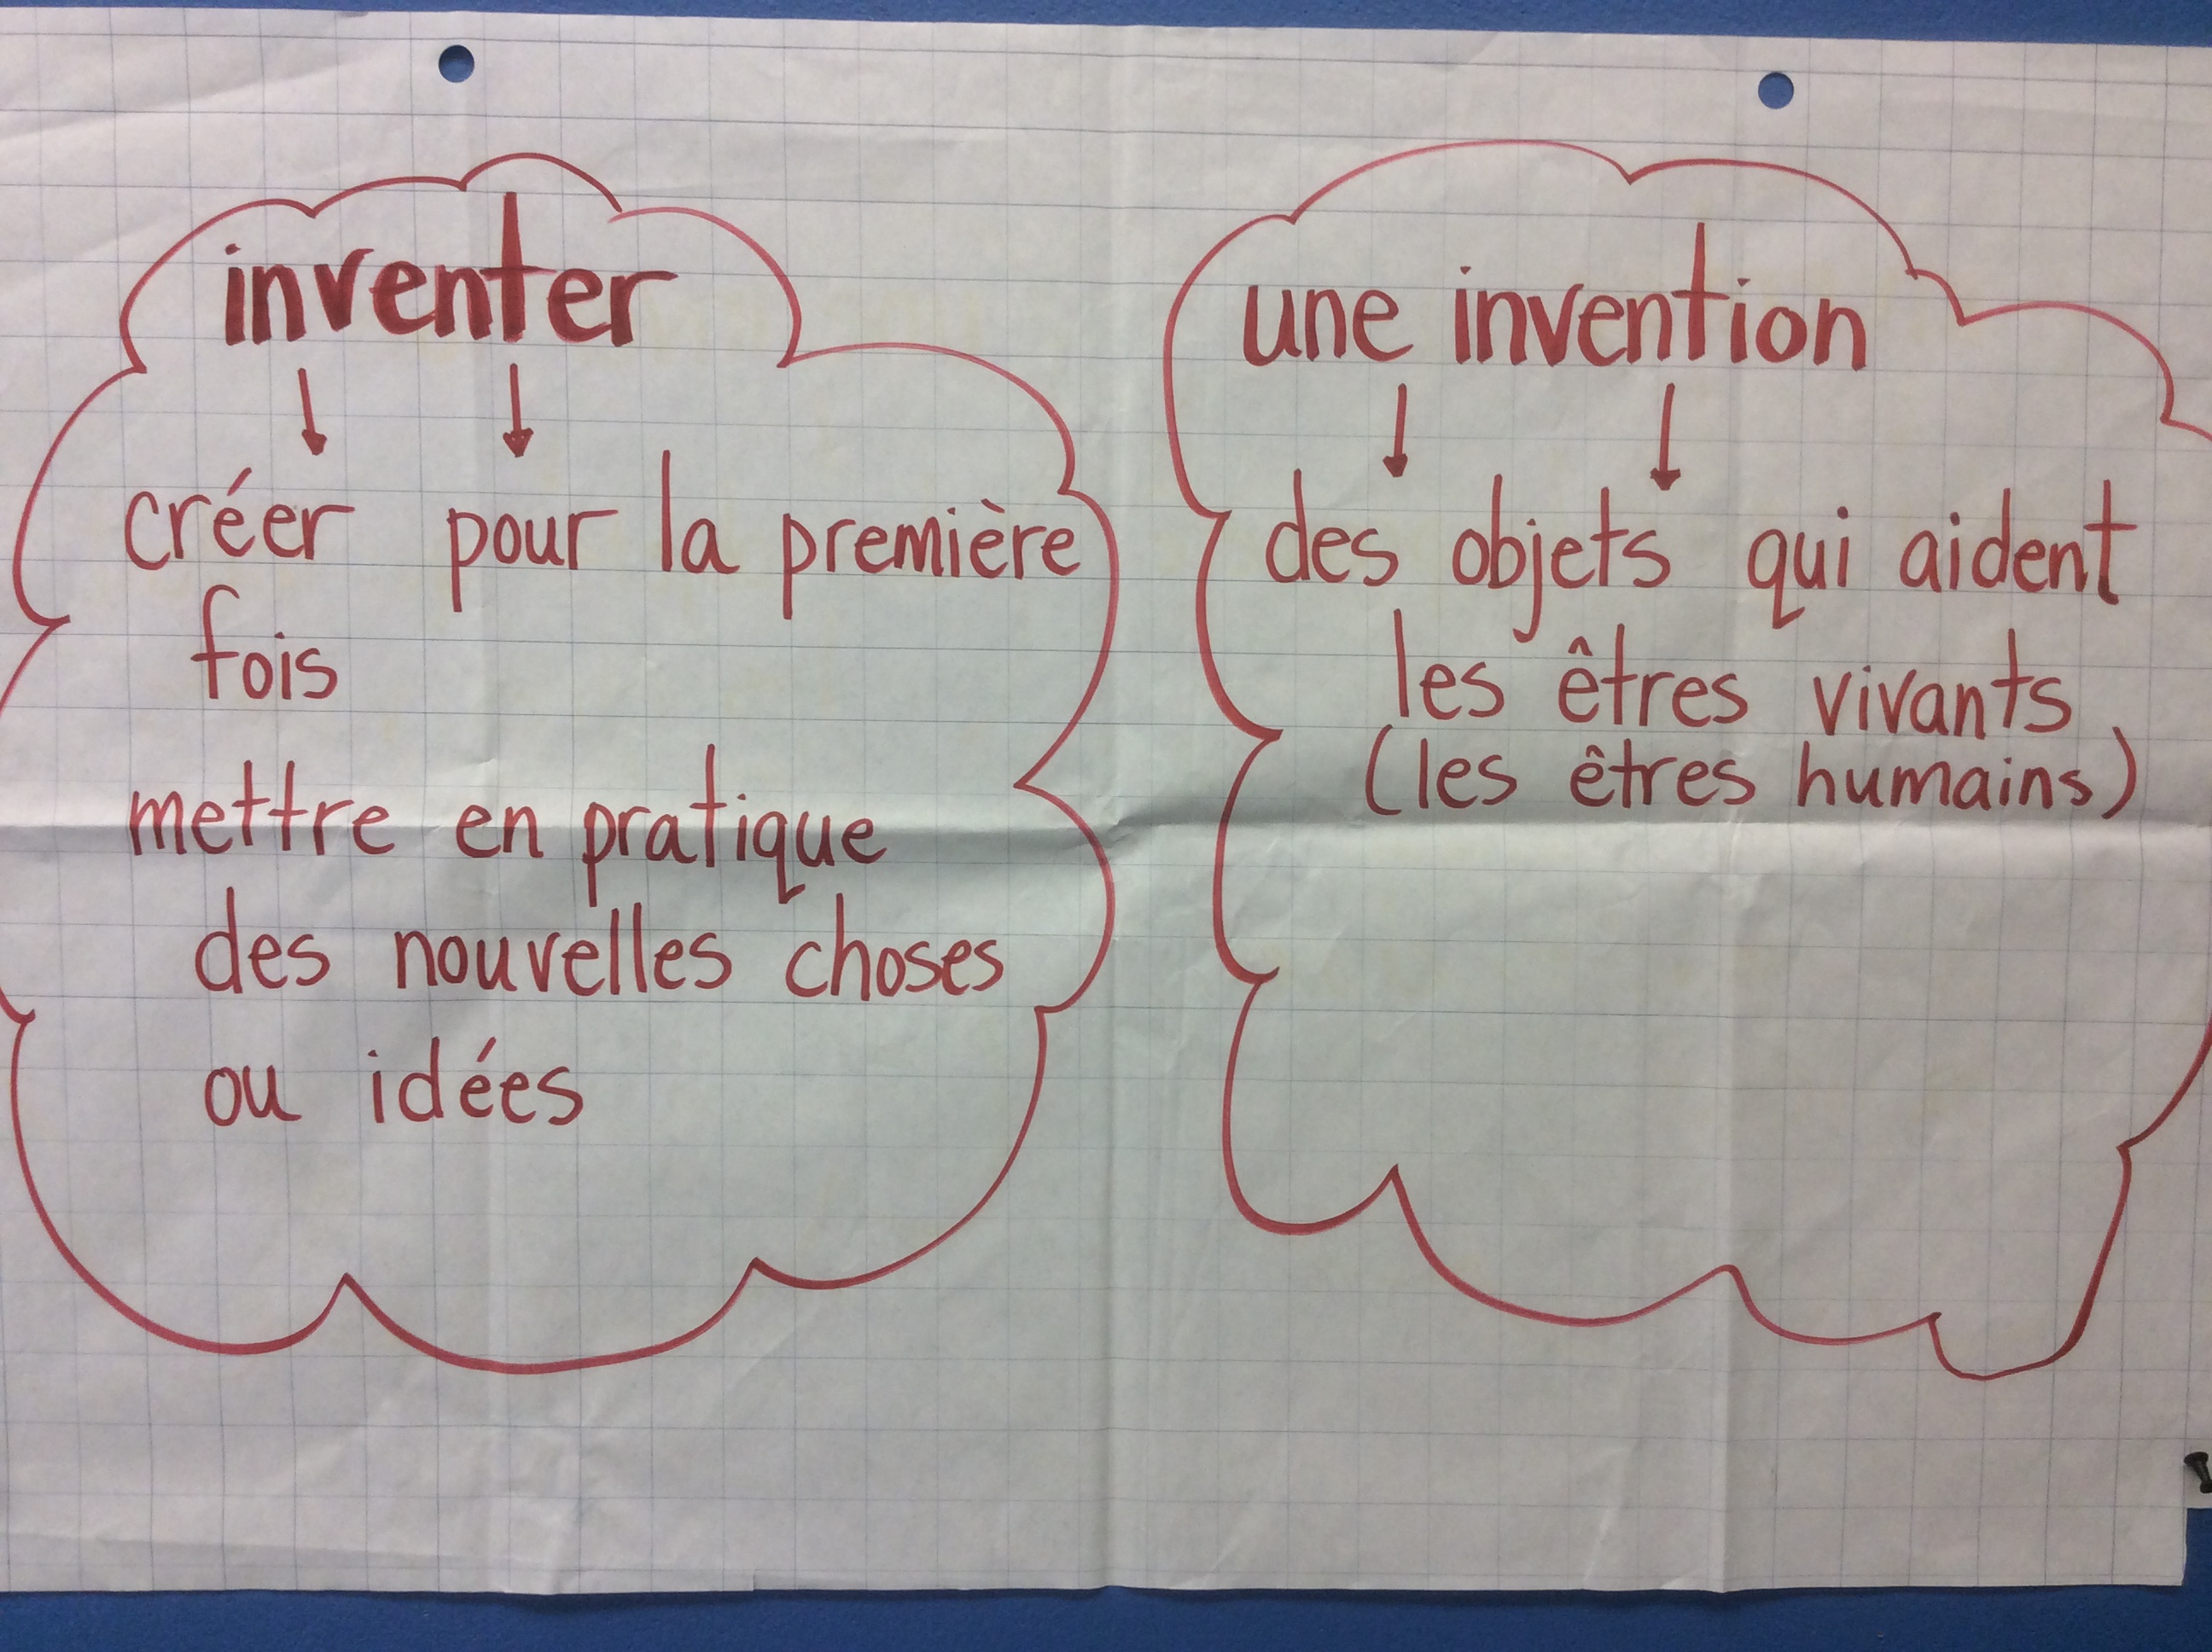 inventer
créer pour la première
fois
mettre en pratique
des nouvelles choses
ou idées
une invention
des objets qui aident
les êtres vivants
(les êtres humains)